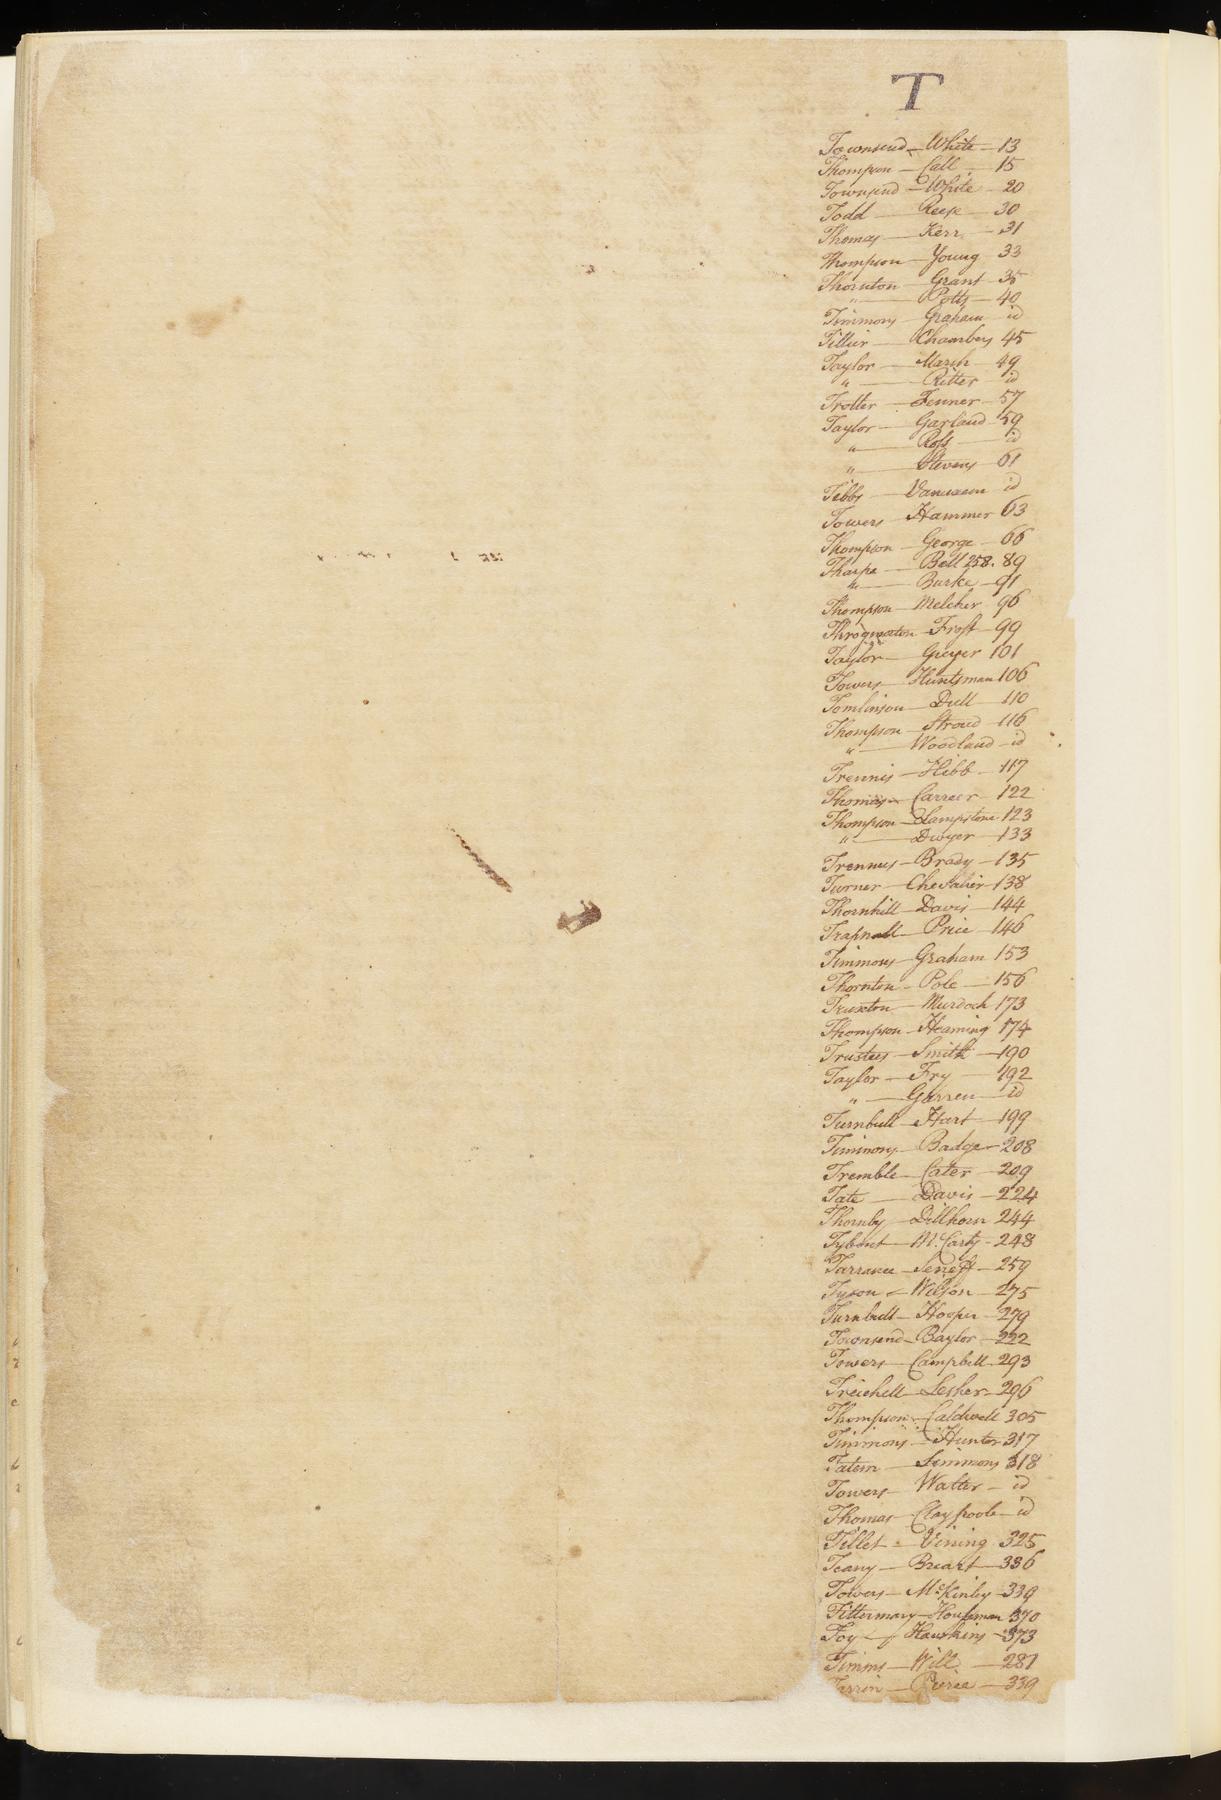 T
Townsend — White — 13
Thompson — Call — 15
Townsend — White — 20
Todd — Reese — 30
Thomas — Kerr — 31
Thompson — Young 33
Thornton — Grant — 35
" — Potts — 40
Timmons — Graham — id
Tillier — Chambers 45
Taylor — Marsh — 49
" — Ritter — id
Trotter — Fenner — 57
Taylor — Garland — 59
" — Ross — id
" — Stevens — 61
Tibbs — Vanuxem id
Towers — Hammer 63
Thompson — George — 66
Tharpe — Bell 258. 89
" — Burke — 91
Thompson — Melcher 96
Throgmorton — Frost — 99
Taylor — Geyer 101
Towers — Huntsman 106
Tomlinson — Dull — 110
Thompson — Stroud — 116
" — Woodland — id
Trennis — Hibb — 117
Thomas — Carrer — 122
Thompson — Hampstone 123
" — Dwyer — 133
Trennus — Brady — 135
Turner — Chevalier — 138
Thornhill — Davis — 144
Trapnall — Price — 146
Timmons — Graham 153
Thornton — Pole — 156
Truxton — Murdoch 173
Thompson — Heaming 174
Trustees — Smith — 190
Taylor — Fry — 192
" — Garren — id
Turnbull — Hart — 199
Timmons — Badger — 208
Tremble — Cater — 209
Tate — Davis — 224
Thornby — Dillhorn 244
Tybout — McCarty — 248
Tarrance — Seneff — 259
Tyson — Wilson — 275
Turnbull — Hooper — 279
Townsend — Baylor — 222
Towers — Campbell — 293
Treichell — Lesher — 296
Thompson — Caldwell 305
Timmons — Hunter 317
Tatem — Simmons 318
Towers — Walter — id
Thomas — Claypoole — id
Tillet — Vining 325
Teany — Breart — 336
Towers — McKinley — 339
Tittermary — Houseman 370
Toy — Hawkins — 373
Timms — Will — 281
— Peirce — 339